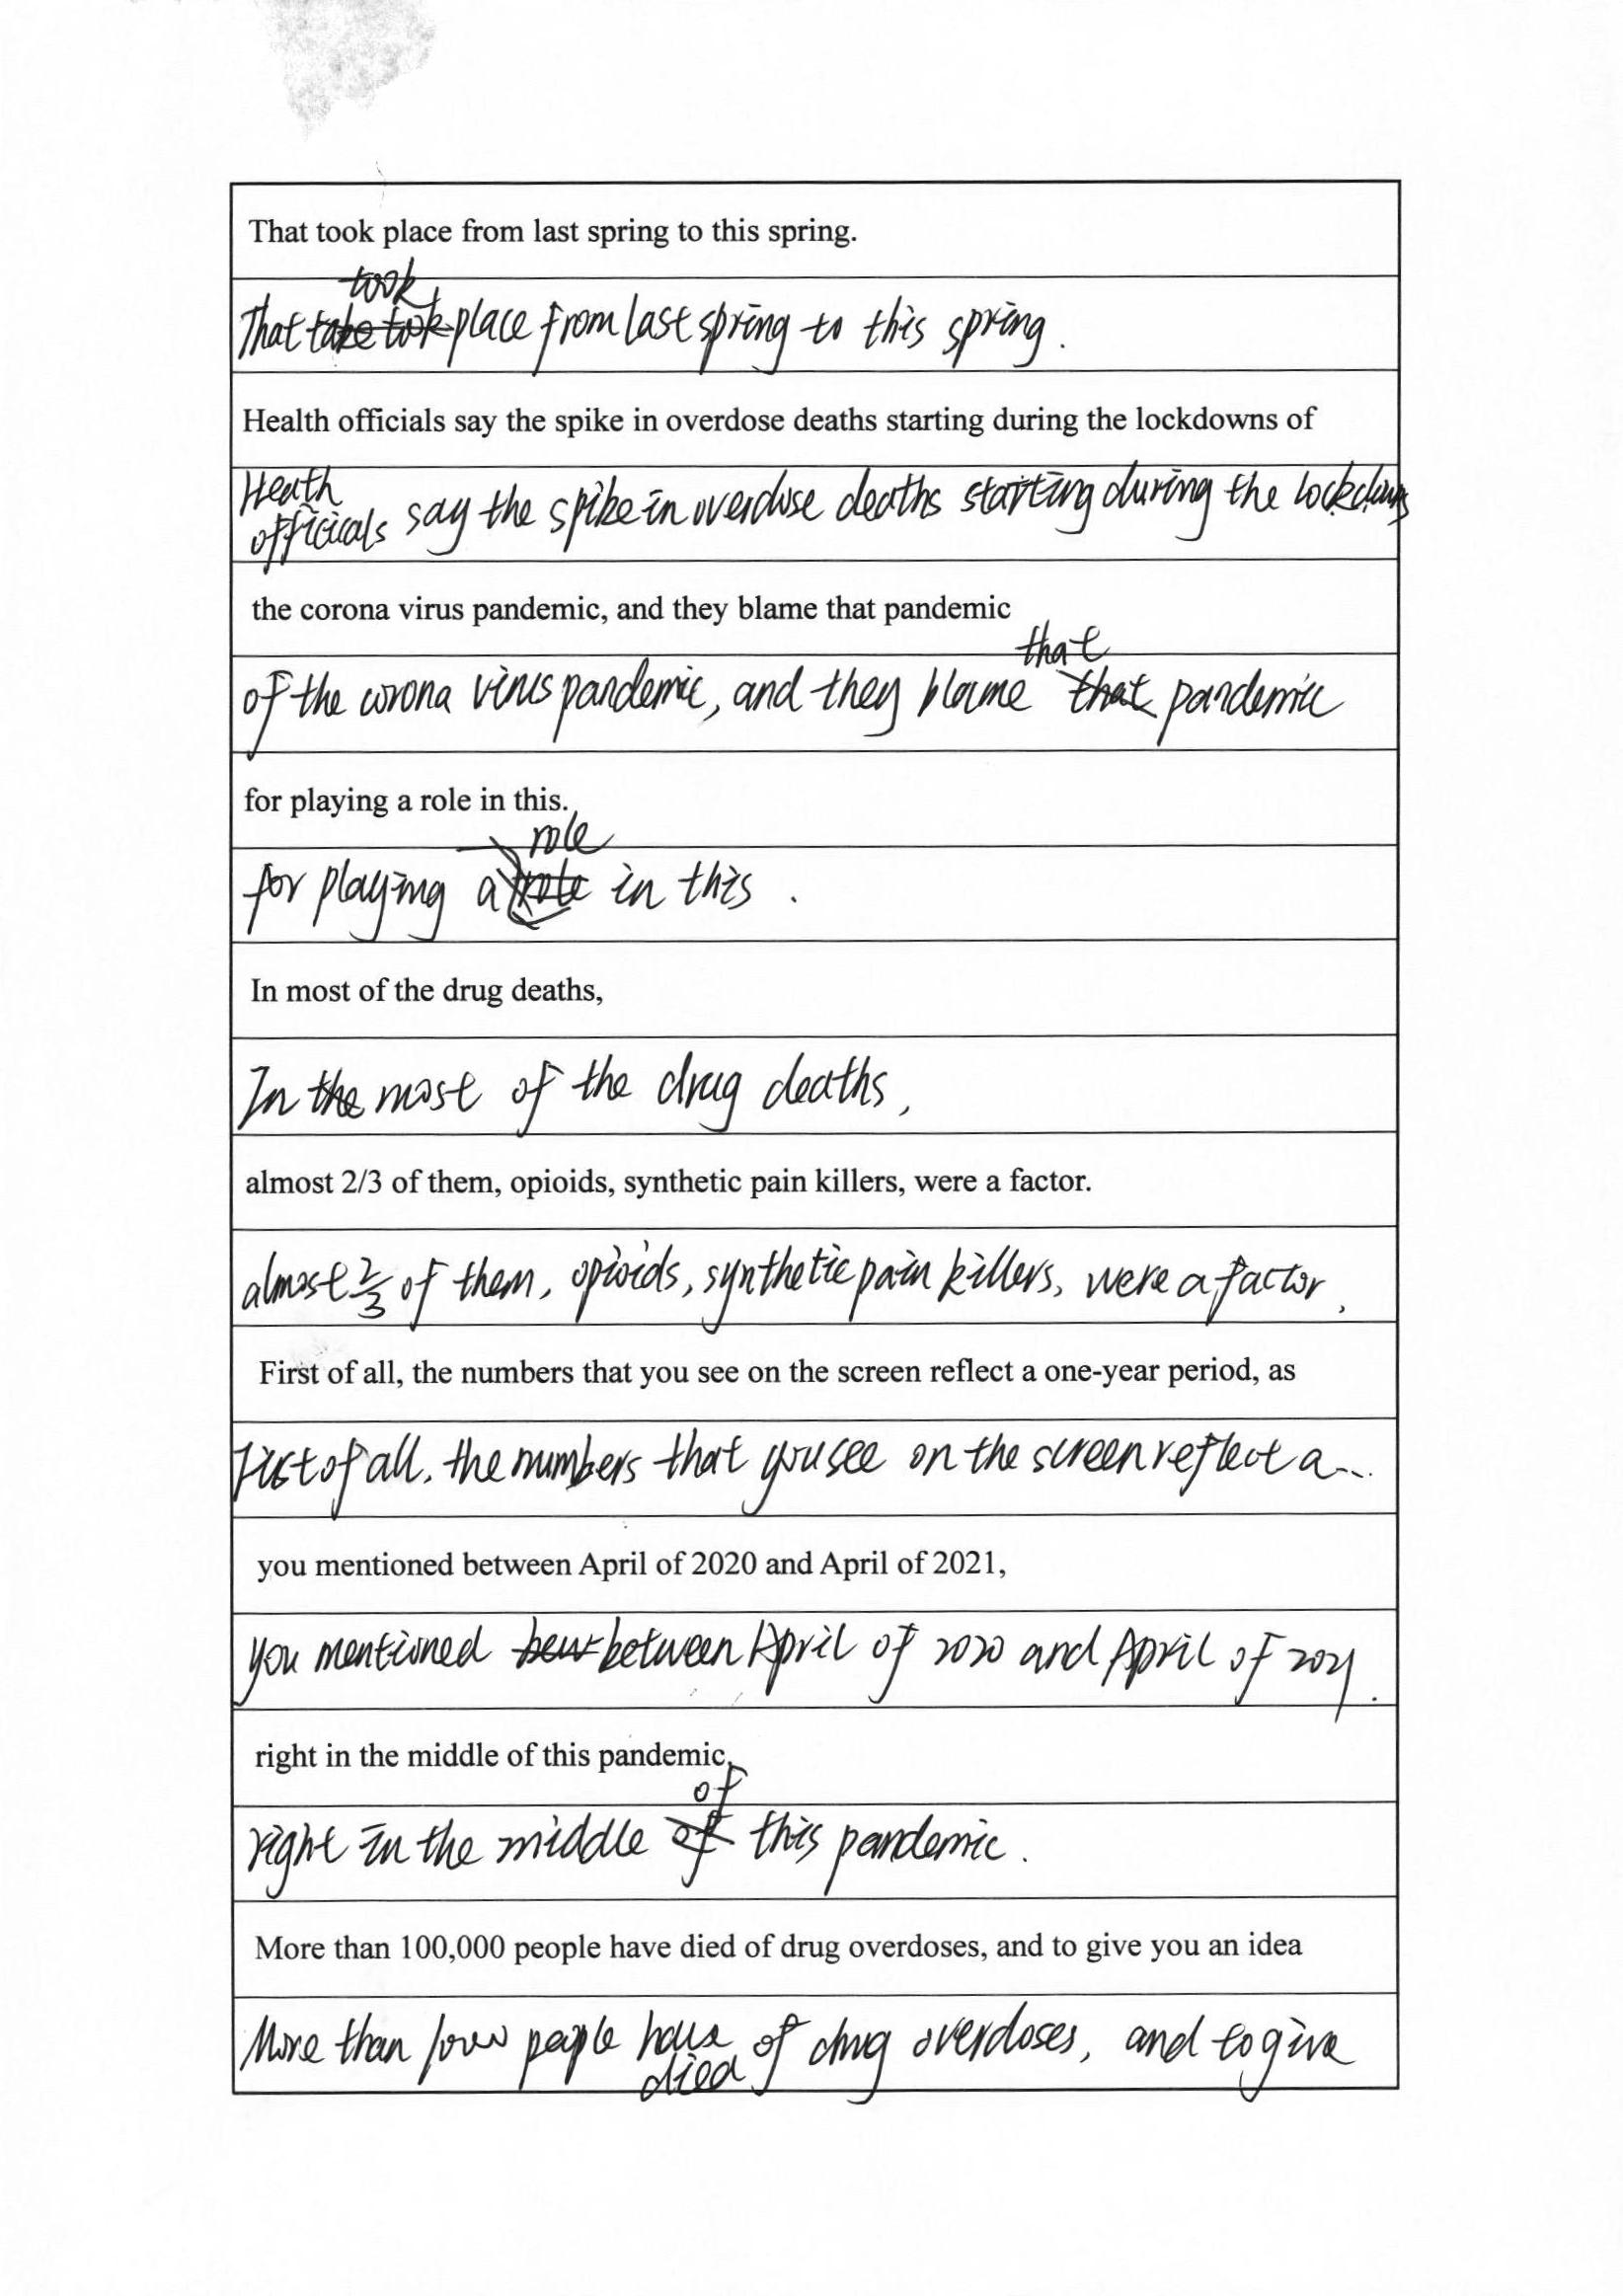 That took place from last spring to this spring.
took
That take took place from last spring to this spring.
Health officials say the spike in overdose deaths starting during the lockdowns of
Heath
officials say the spike in overdose deaths starting during the lockdowns
the corona virus pandemic, and they blame that pandemic
that
of the corona virus pandemic, and they blame that pandemic
for playing a role in this.
role
for playing a role in this.
In most of the drug deaths,
In the most of the drug deaths,
almost 2/3 of them, opioids, synthetic pain killers, were a factor.
almost 2/3 of them, opioids, synthetic pain killers, were a factor,
First of all, the numbers that you see on the screen reflect a one-year period, as
of all, the numbers that you see on the screen reflect a...
you mentioned between April of 2020 and April of 2021,
you mentioned between April of 2020 and April of 2021.
right in the middle of this pandemic,
of
right in the middle of this pandemic.
More than 100,000 people have died of drug overdoses, and to give you an idea
More than people have of drug overdoses, and to give
died